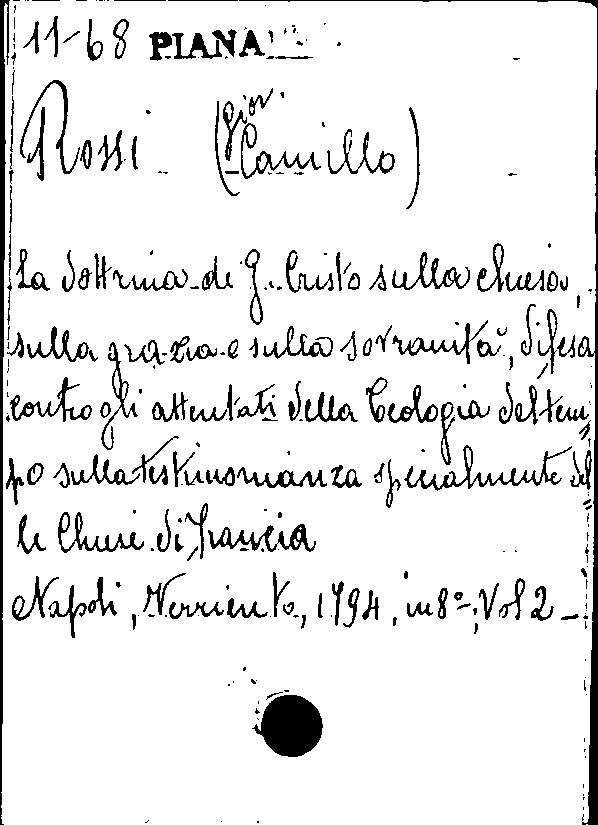 11-68 PIANA
Rossi (Giov. Camillo)
La dottrina di G. Cristo sulla chiesa,
sulla grazia e sulla sovranità, difesa
contro gli attentati della Teologia del tem=
po sulla testimonianza specialmente del=
le Chiese di Francia
Napoli, Verriento, 1794, in 8º, Vol 2 -